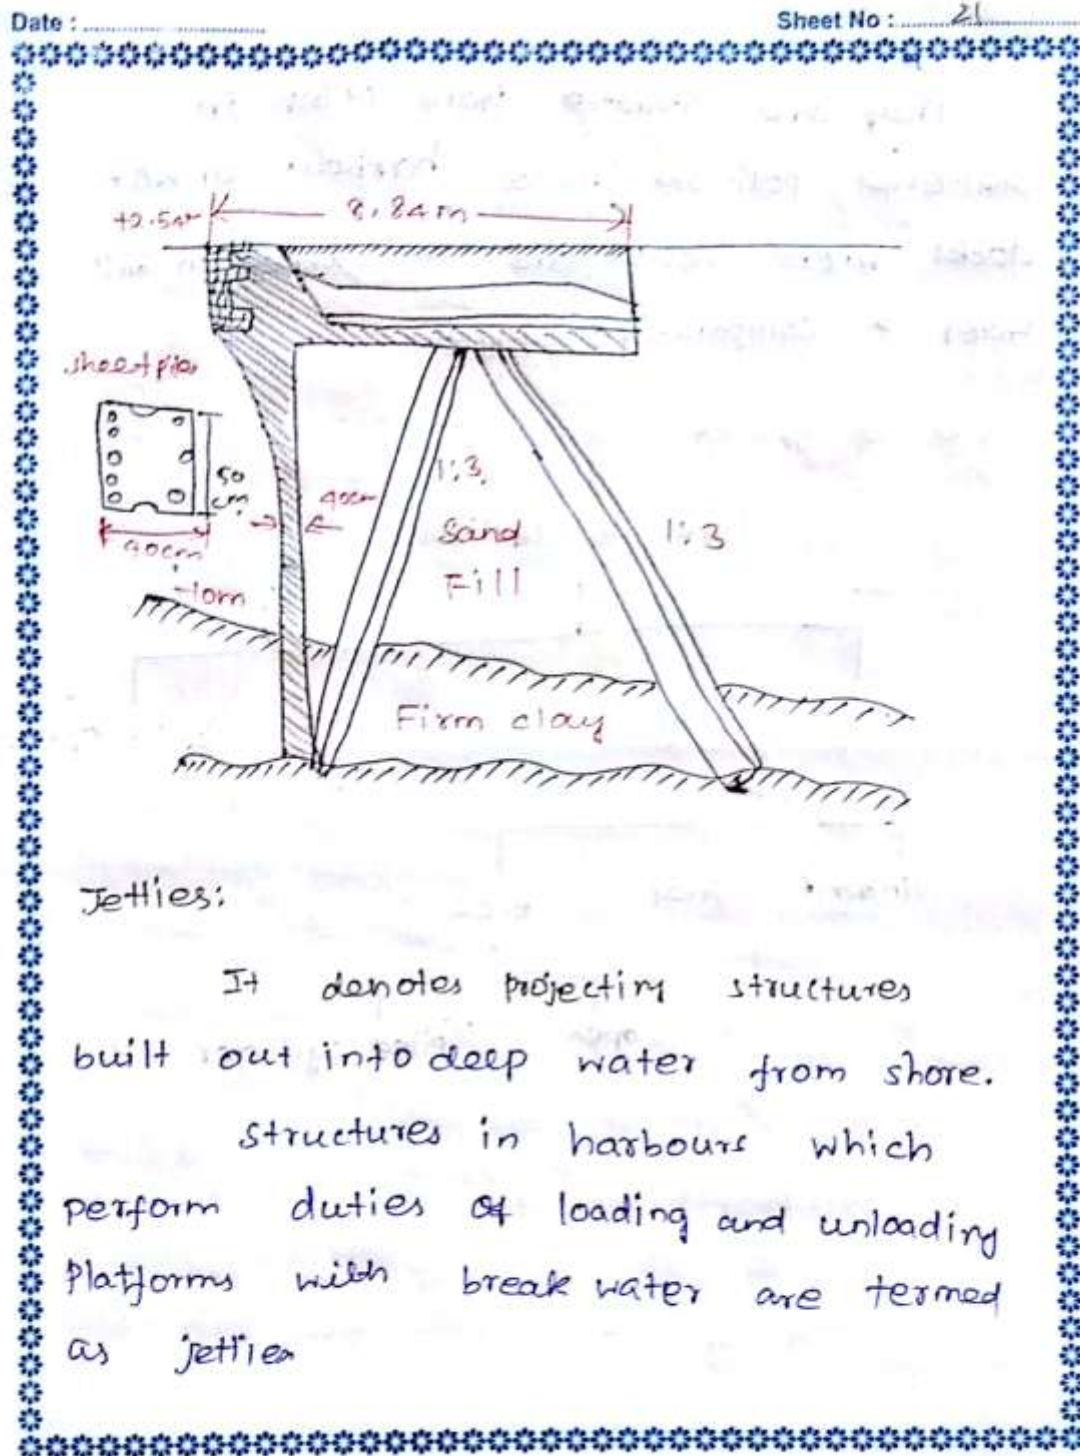 Date :
Sheet No : 21
8.84m
+2.5m
sheet pile
50 cm
40cm
40cm
-10m
1:3
Sand
Fill
1:3
Firm clay
Jetties:
It denotes projecting structures
built out into deep water from shore.
structures in harbours which
perform duties of loading and unloading
Platforms with break water are termed
as jetties